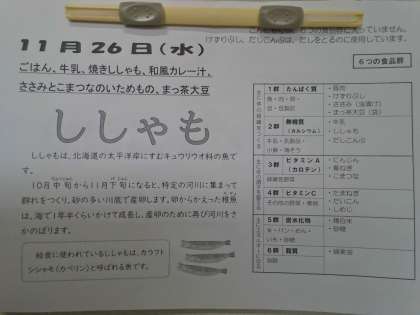 こんぶは、6つの食品群に入っていません。
けずりぶし、だしこんぶは、だしをとるのに使用しています。
11月26日(水)
6つの食品群
ごはん、牛乳、焼きししゃも、和風カレー汁、
ささみとこまつなのいためもの、まっ茶大豆
ししゃも
ししゃもは、北海道の太平洋岸にすむキュウリウオ科の魚です。
10月中旬から11月下旬になると、特定の河川に集まって
群れをつくり、砂の多い川底で産卵します。卵からかえった稚魚
は、海で1年半くらいかけて成長し、産卵のために再び河川をさ
かのぼります。
給食に使われているししゃもは、カラフト
シシャモ(カペリン)と呼ばれる魚です。
1群 たんぱく質
魚・肉・卵・
豆・豆製品
・豚肉
・けずりぶし
・ささみ(油漬け)
・まっ茶大豆(袋)
2群 無機質
(カルシウム)
牛乳・乳製品
小魚・海そう
・牛乳
・ししゃも
・だしこんぶ
3群 ビタミンA
(カロテン)
緑黄色野菜
・にんじん
・青ねぎ
・こまつな
4群 ビタミンC
その他の野菜・果物
・たまねぎ
・だいこん
・しめじ
5群 炭水化物
米・パン・めん・
いも・砂糖
・精白米
・砂糖
6群 脂質
油脂
・綿実油